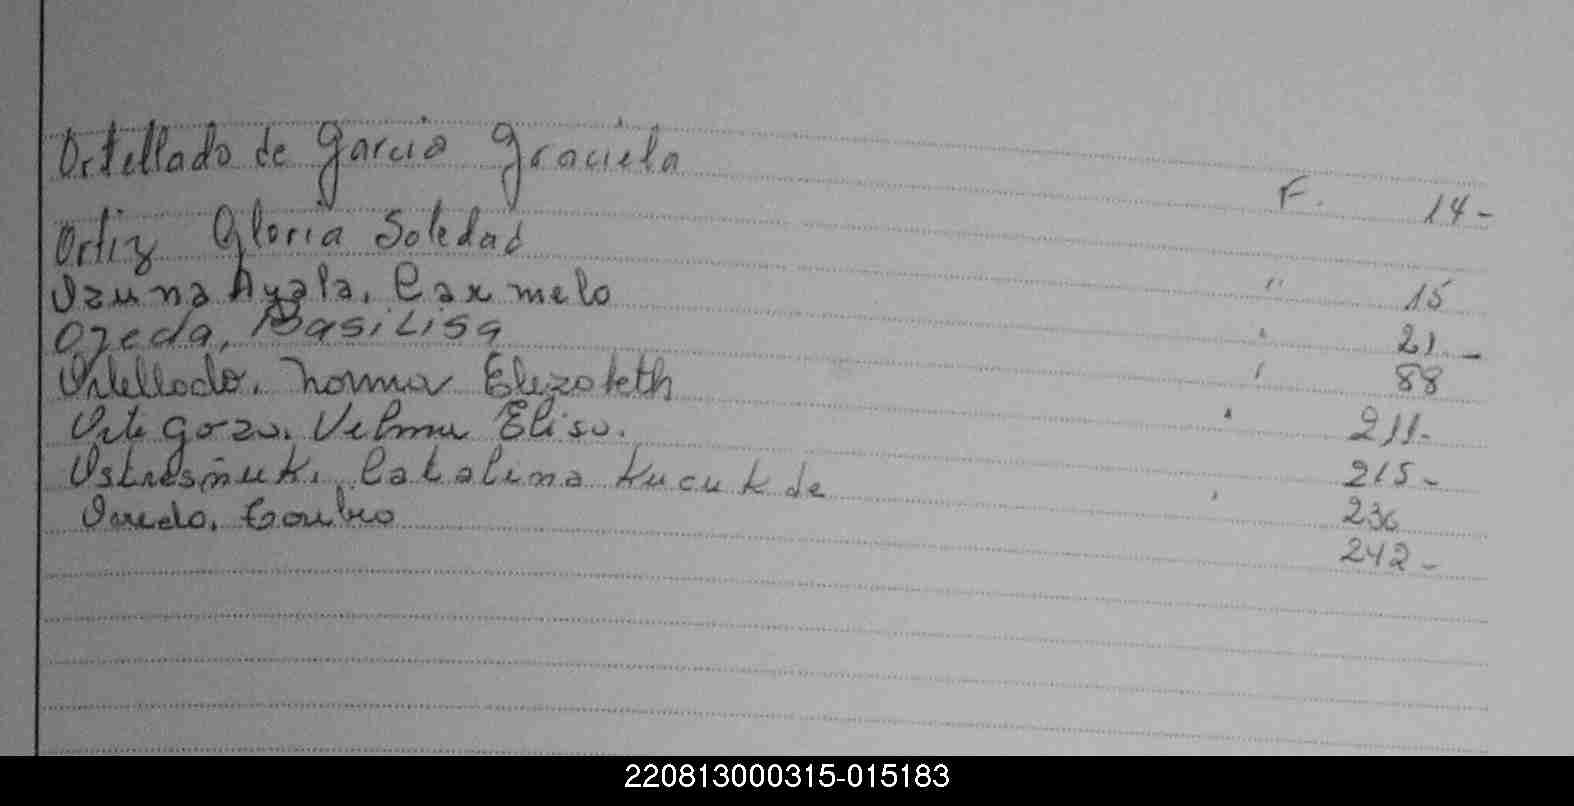 Ortellado de Garcia Graciela F. 14-
Ortiz Gloria Soledad " 15
Ozuna Ayala, Carmelo " 21-
Ojeda, Basilisa " 88
Ortellado, Norma Elizabeth " 211-
Ortegoza, Velma Elisa. 215-
Catalina Kucuk de 236
242-
220813000315-015183